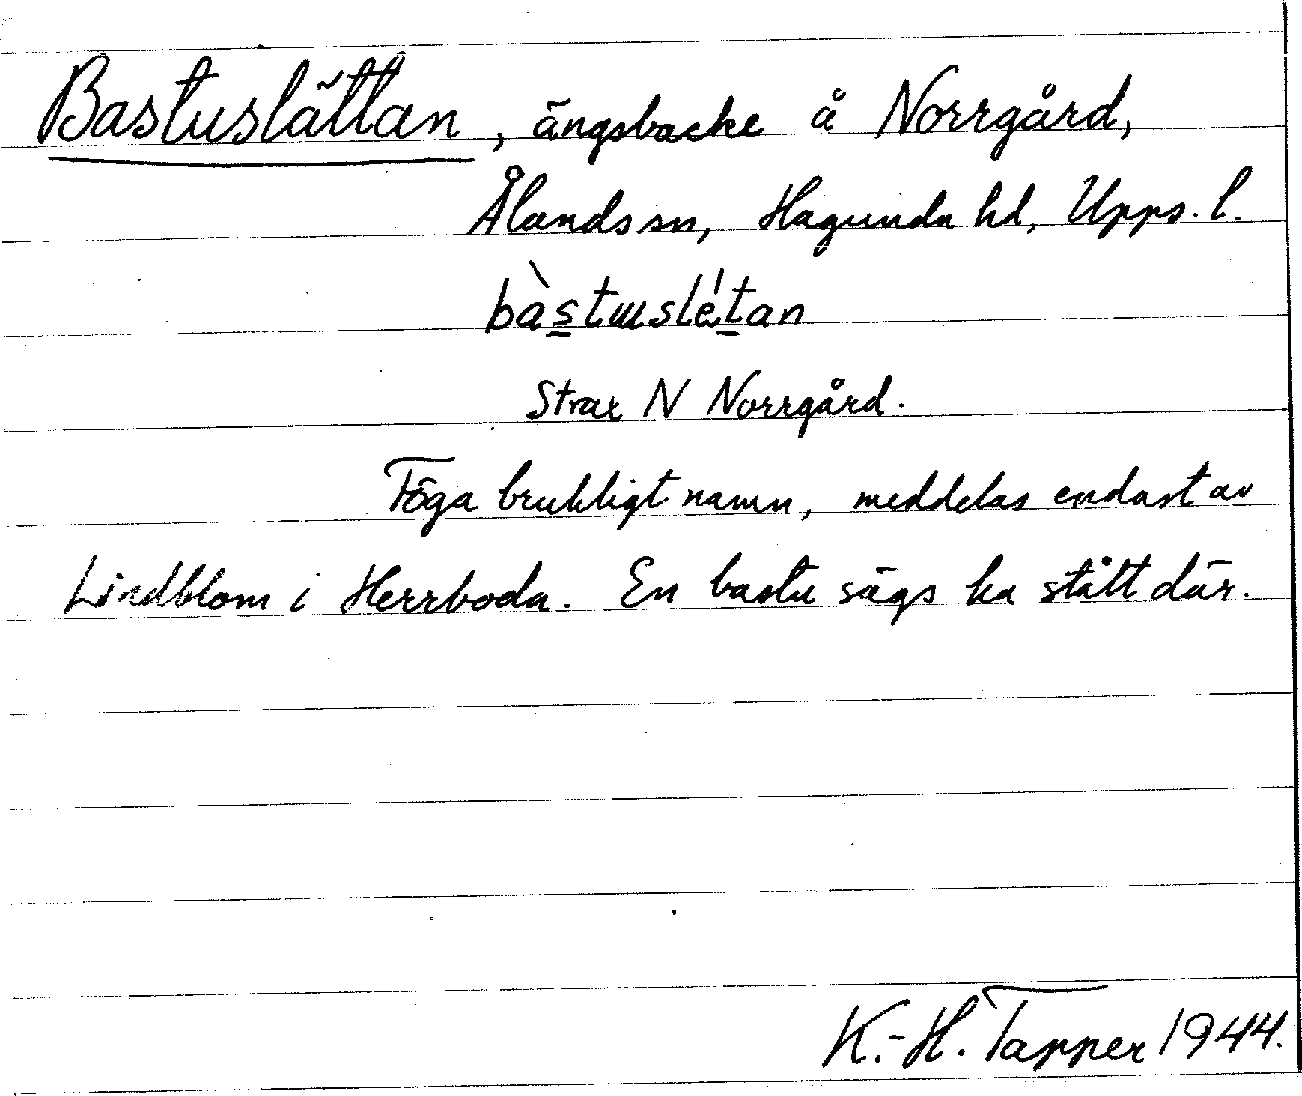 Bastuslättan, ängsbacke å Norrgård,
Ålands sn, Hagunda hd, Upps. l.
bàstɯslétan
Strax N Norrgård.
Föga brukligt namn, meddelas endast av
Lindblom i Herrboda. En bastu sägs ha stått där.
K.-H. Tapper 1944.